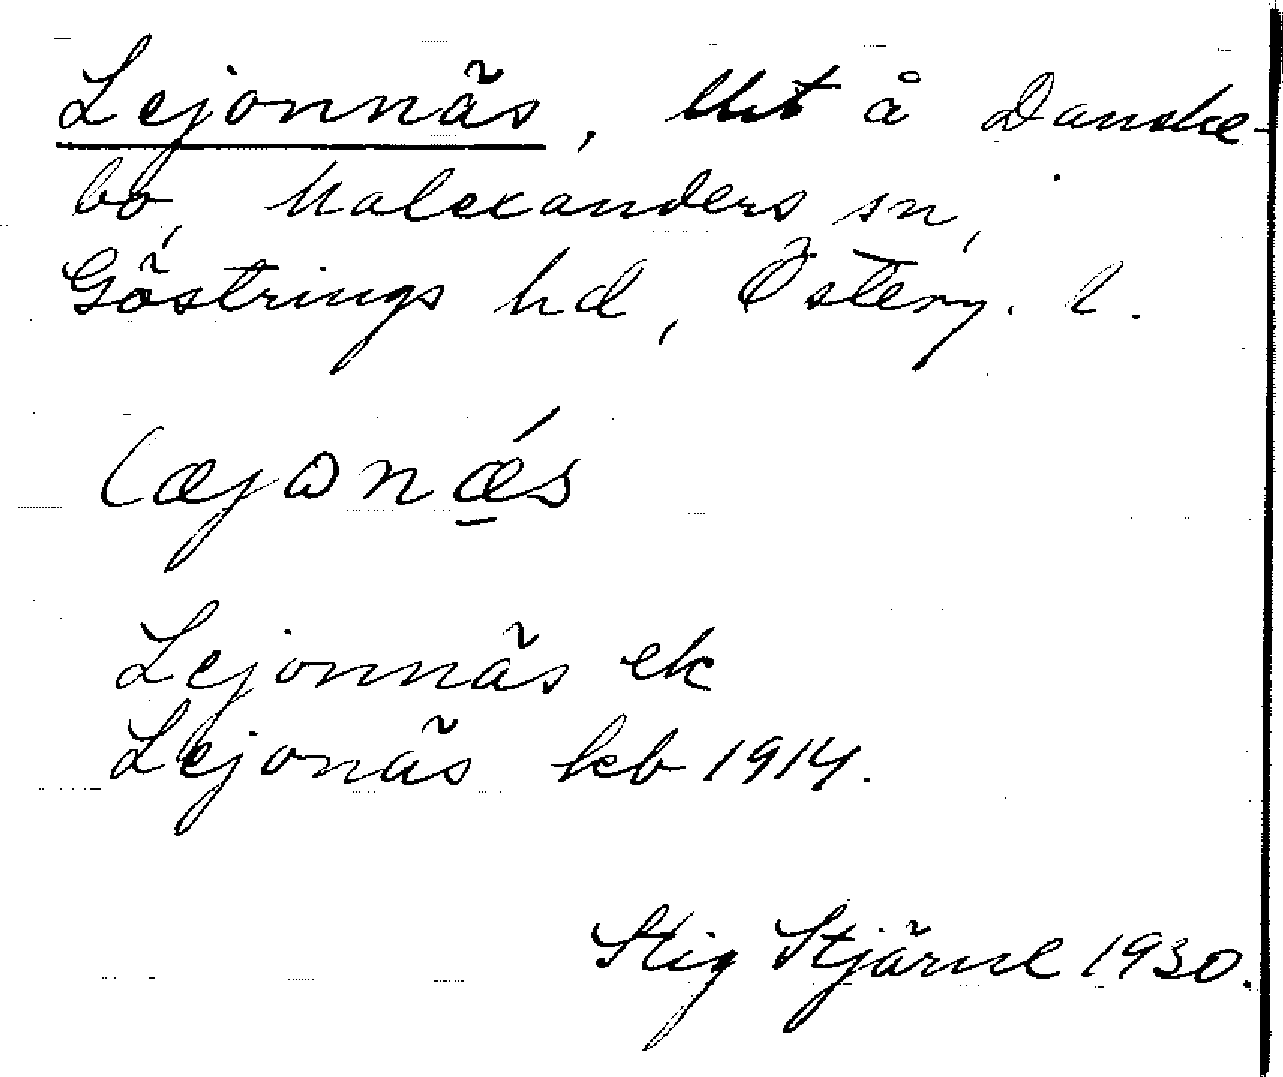 Lejonnäs, lht å Danske-
bo, Malexanders sn,
Göstrings hd, Österg. l.
læjonǽ̠s
Lejonnäs ek
Lejonäs kb 1914.
Stig Stjärne 1930.